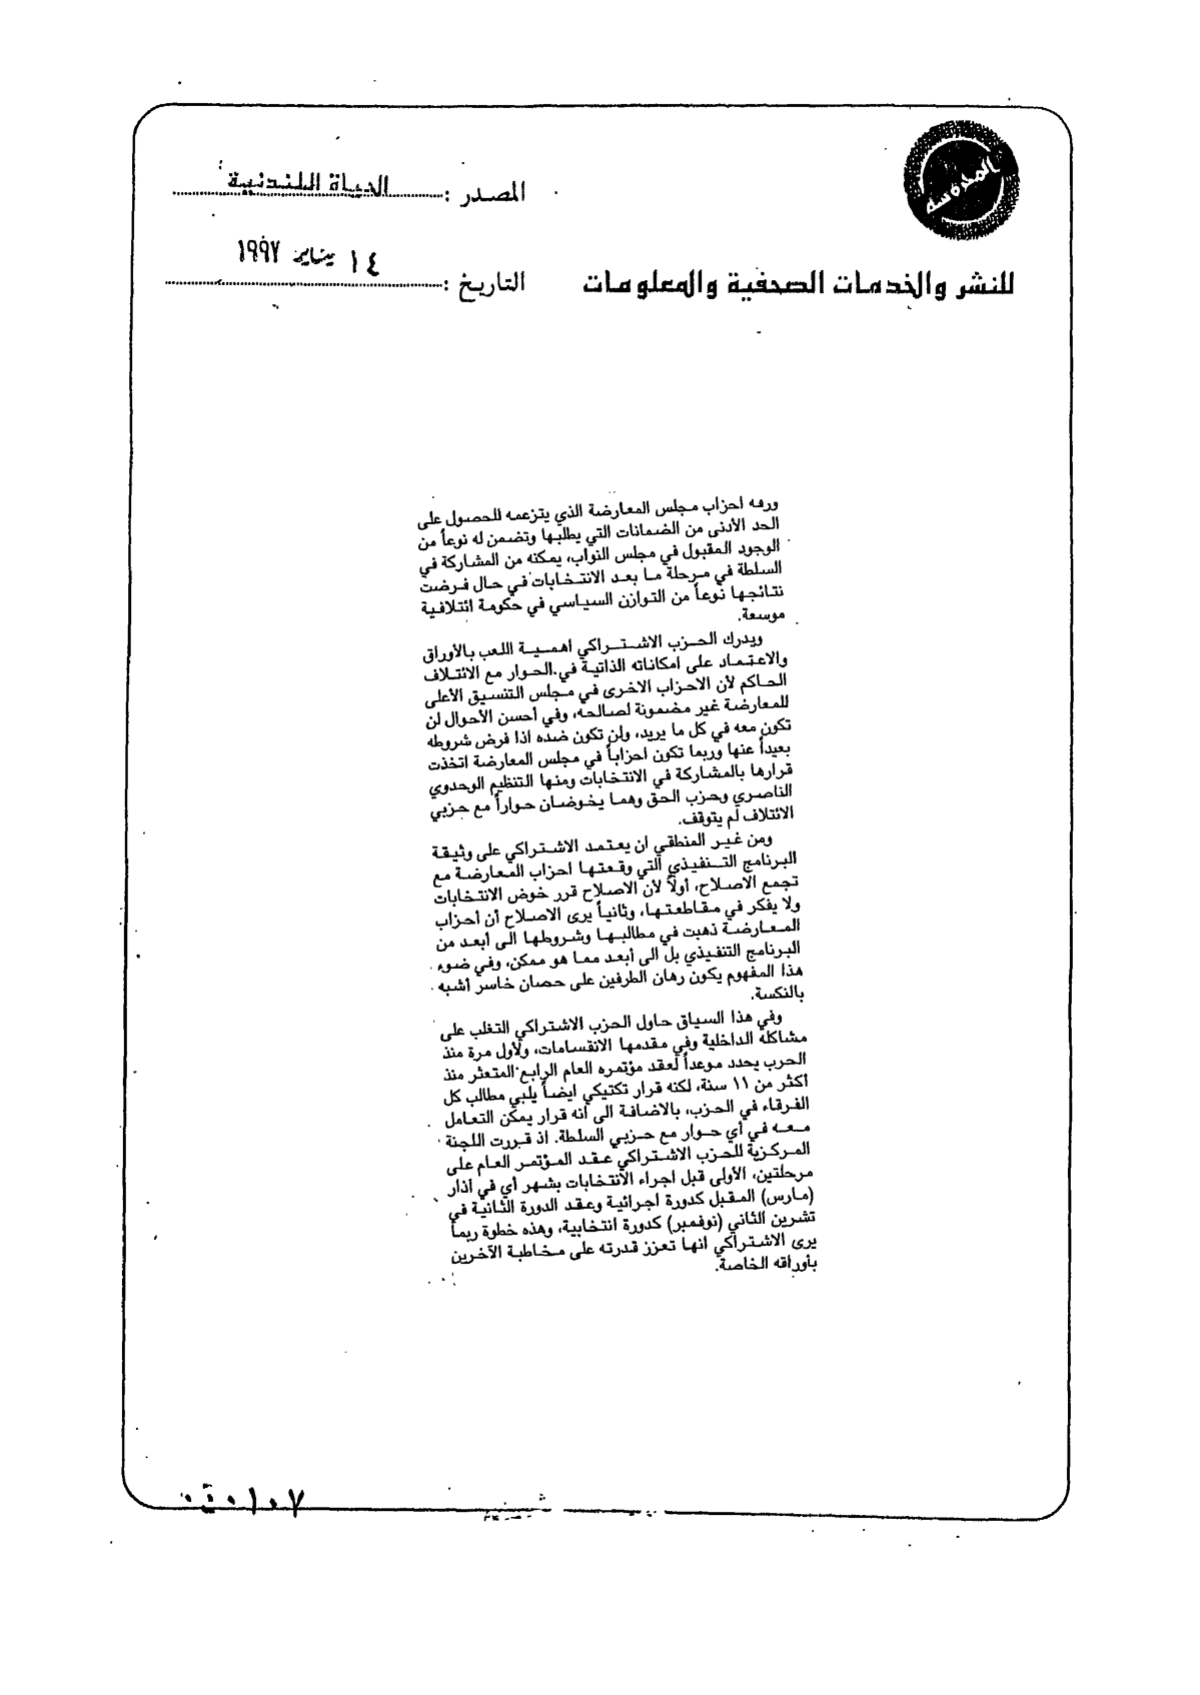 المدرسة
المصدر : الحياة اللندنية
التاريخ : ١٤ يناير ١٩٩٧
للنشر والخدمات الصحفية والمعلومات
احزاب مجلس المعارضة الذي يتزعمه للحصول على
الحد الأدنى من الضمانات التي يطلبها وتضمن له نوعاً من
الوجود المقبول في مجلس النواب، يمكنه من المشاركة في
السلطة في مرحلة ما بعد الانتخابات في حال فرضت
نتائجها نوعاً من التوازن السياسي في حكومة ائتلافية
موسعة.
ويدرك الحزب الاشتراكي اهمية اللعب بالأوراق
والاعتماد على امكاناته الذاتية في الحوار مع الائتلاف
الحاكم لأن الاحزاب الاخرى في مجلس التنسيق الأعلى
للمعارضة غير مضمونة لصالحه، وفي أحسن الأحوال لن
تكون معه في كل ما يريد، ولن تكون ضده اذا فرض شروطه
بعيداً عنها وربما تكون احزاباً في مجلس المعارضة اتخذت
قرارها بالمشاركة في الانتخابات ومنها التنظيم الوحدوي
الناصري وحزب الحق وهما يخوضان حواراً مع حزبي
الائتلاف لم يتوقف.
ومن غير المنطقي ان يعتمد الاشتراكي على وثيقة
البرنامج التنفيذي التي وقعتها احزاب المعارضة مع
تجمع الاصلاح، أولاً لأن الاصلاح قرر خوض الانتخابات
ولا يفكر في مقاطعتها، وثانياً يرى الاصلاح أن أحزاب
المعارضة ذهبت في مطالبها وشروطها الى أبعد من
البرنامج التنفيذي بل الى أبعد مما هو ممكن، وفي ضوء
هذا المفهوم يكون رهان الطرفين على حصان خاسر أشبه
بالنكسة.
وفي هذا السياق حاول الحزب الاشتراكي التغلب على
مشاكله الداخلية وفي مقدمها الانقسامات، ولأول مرة منذ
الحرب يحدد موعداً لعقد مؤتمره العام الرابع المتعثر منذ
أكثر من ١١ سنة، لكنه قرار تكتيكي ايضاً يلبي مطالب كل
الفرقاء في الحزب، بالاضافة الى انه قرار يمكن التعامل
معه في أي حوار مع حزبي السلطة. اذ قررت اللجنة
المركزية للحزب الاشتراكي عقد المؤتمر العام على
مرحلتين، الأولى قبل اجراء الانتخابات بشهر أي في آذار
(مارس) المقبل كدورة اجرائية وعقد الدورة الثانية في
تشرين الثاني (نوفمبر) كدورة انتخابية، وهذه خطوة ربما
يرى الاشتراكي انها تعزز قدرته على مخاطبة الآخرين
بأوراقه الخاصة.